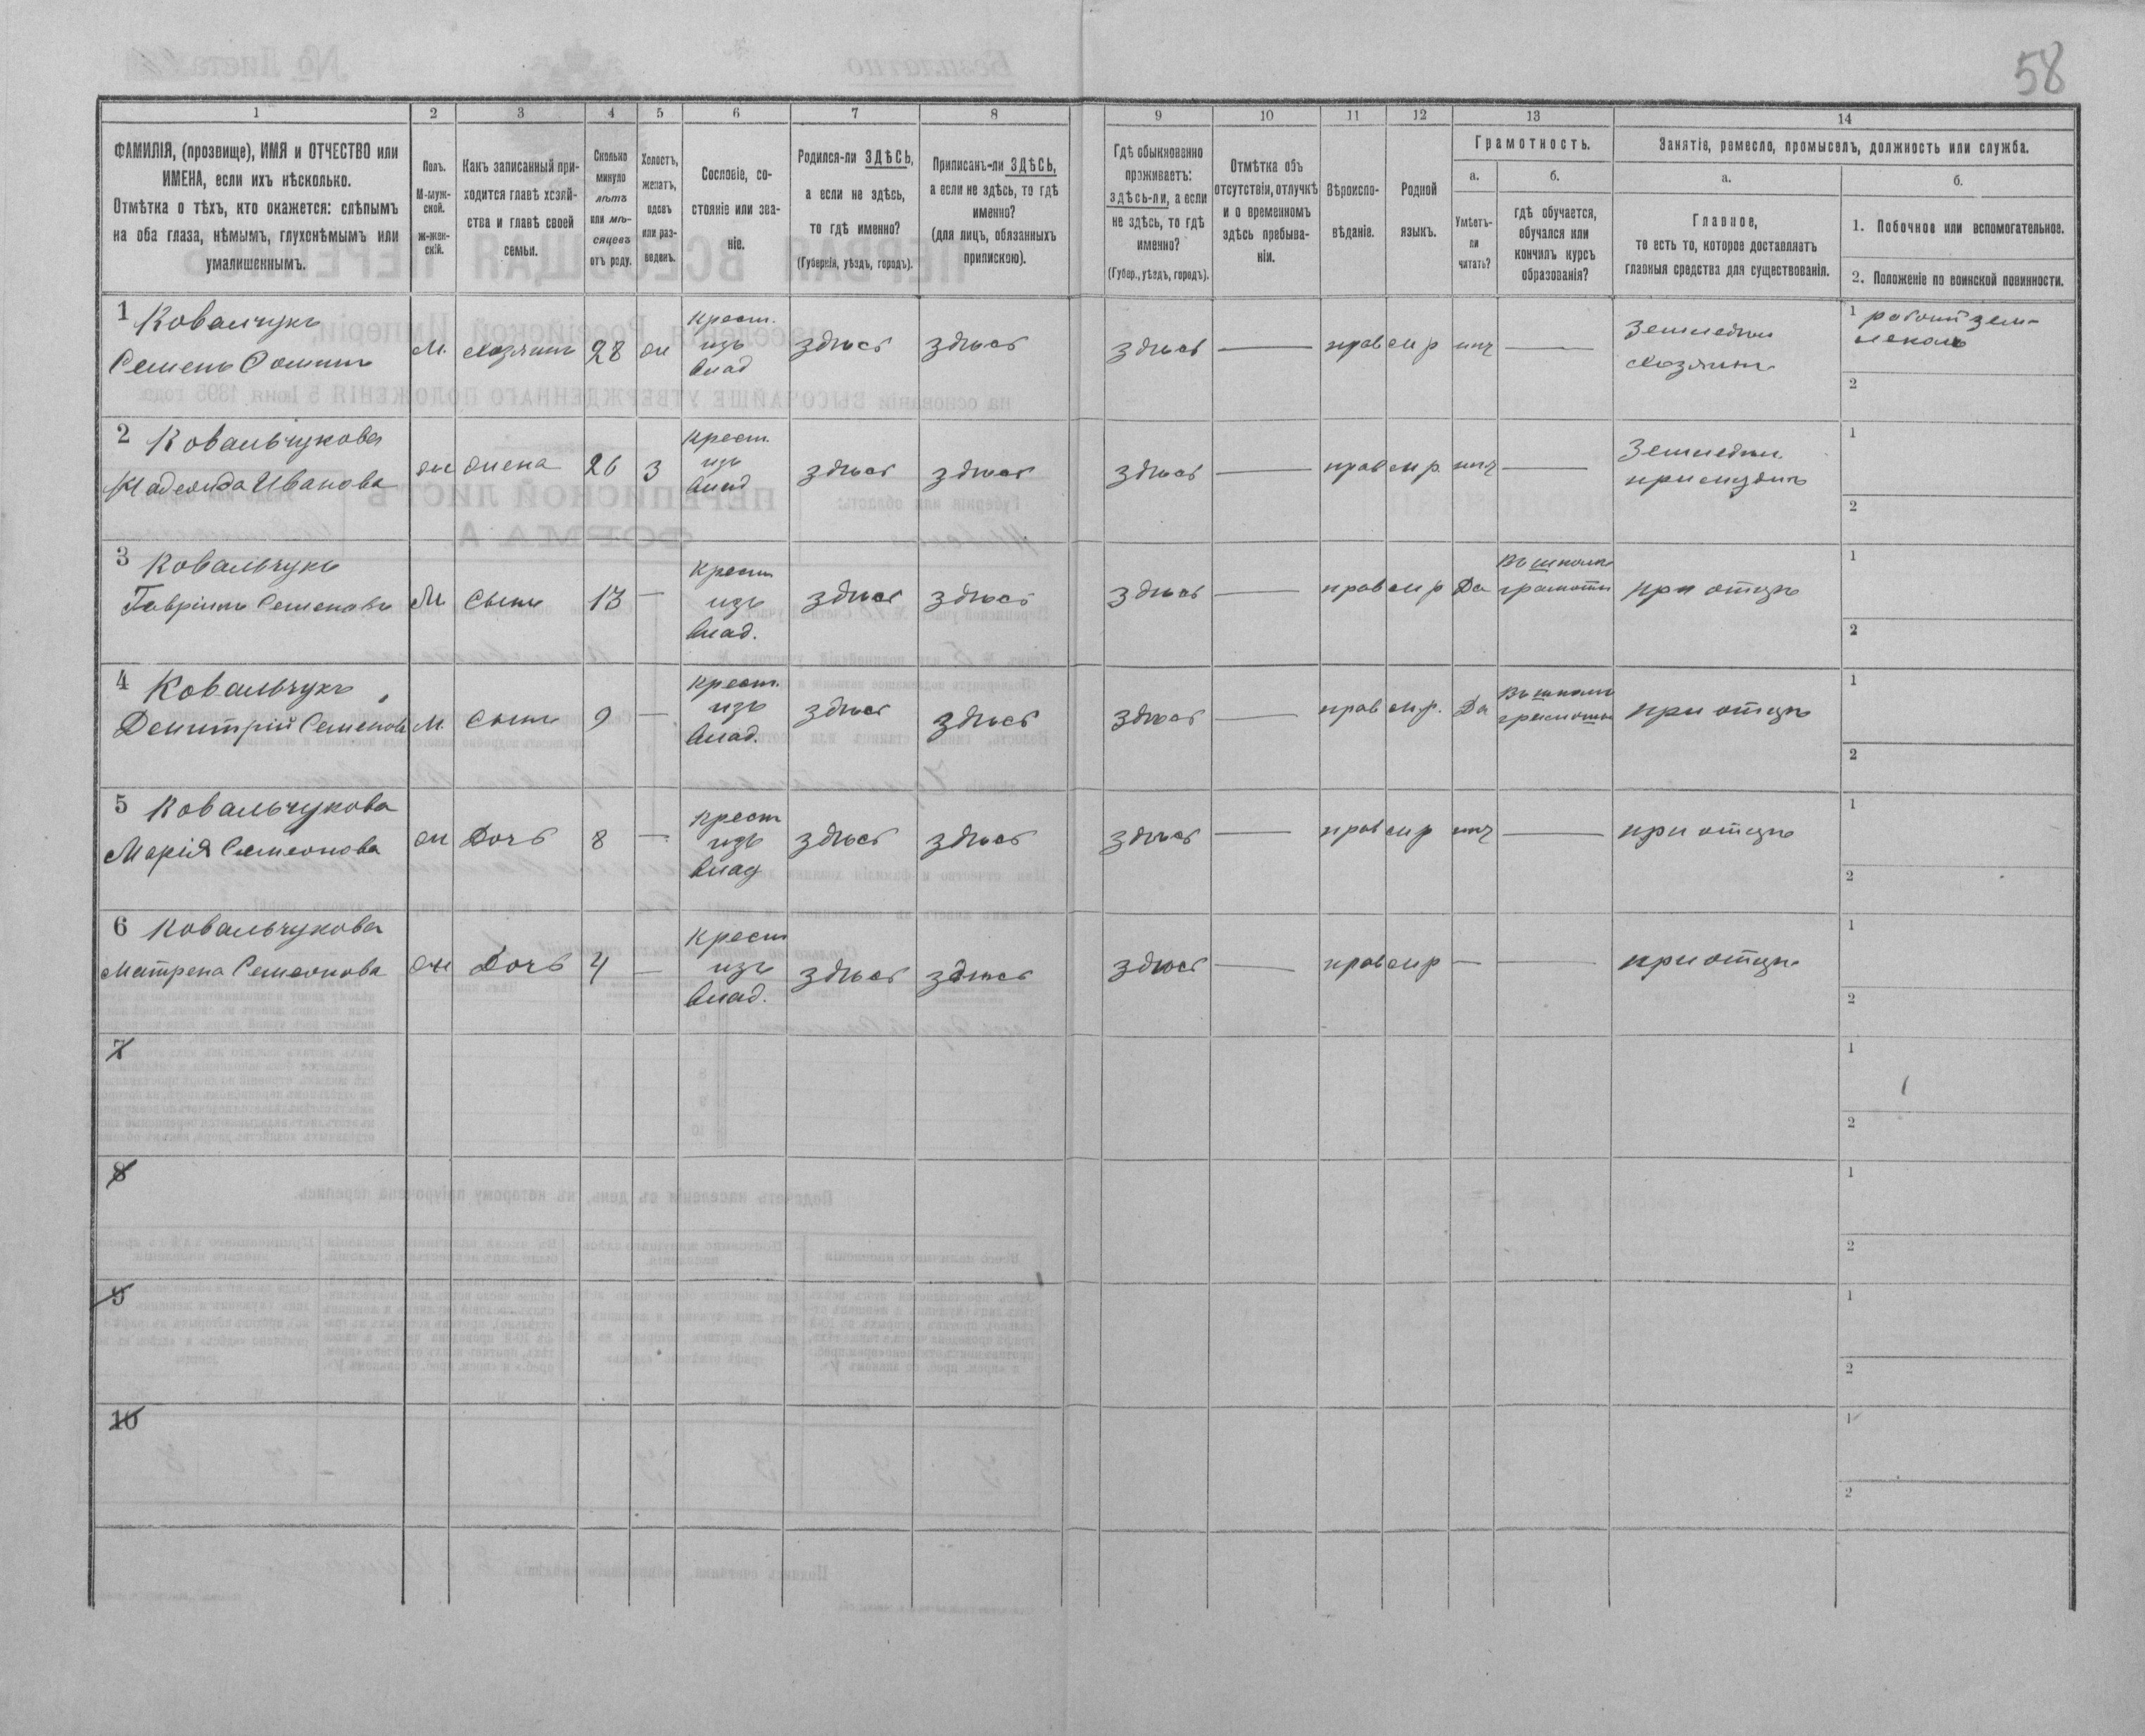 58
1 2 3 4 5 6 7 8 9 10 11 12 13 14
ФАМИЛІЯ, (прозвище), ИМЯ и ОТЧЕСТВО или
ИМЕНА, если ихъ нѣсколько.
Отмѣтка о тѣхъ, кто окажется: слѣпымъ
на оба глаза, нѣмымъ, глухонѣмымъ или
умалишеннымъ.
Полъ.
М-муж-
ской.
ж-жен-
скій.
Какъ записанный при-
ходится главѣ хозяй-
ства и главѣ своей
семьи.
Сколько
минуло
лѣтъ
или мѣ-
сяцевъ
отъ роду.
Холостъ,
женатъ,
вдовъ
или раз-
веденъ.
Сословіе, со-
стояніе или зва-
ніе.
Родился-ли ЗДѢСЬ,
а если не здѣсь,
то гдѣ именно?
(Губернія, уѣздъ, городъ).
Приписанъ-ли ЗДѢСЬ,
а если не здѣсь, то гдѣ
именно?
(для лицъ, обязанныхъ
припискою).
Гдѣ обыкновенно
проживаетъ:
здѣсь-ли, а если
не здѣсь, то гдѣ
именно?
(Губер., уѣздъ, городъ).
Отмѣтка объ
отсутствіи, отлучкѣ
и о временномъ
здѣсь пребыва-
ніи.
Вѣроиспо-
вѣданіе.
Родной
языкъ.
Грамотность.
а.
Умѣетъ-
ли
читать?
б.
гдѣ обучается,
обучался или
кончилъ курсъ
образованія?
Занятіе, ремесло, промыселъ, должность или служба.
а.
Главное,
то есть то, которое доставляетъ
главныя средства для существованія.
б.
1. Побочное или вспомогательное.
2. Положеніе по воинской повинности.
1 Ковальчукъ
Семенъ
М. хозяинъ 28 ж крест. изъ влад здѣсь здѣсь здѣсь — прав мр — хозяинъ
1
2
2 Ковальчукова
Надежда Иванова ж жена 26 З крест. изъ влад здѣсь здѣсь здѣсь — прав мр —
1
2
3 Ковальчукъ
Гавріилъ Семеновъ М Сынъ 13 — крест изъ влад. здѣсь здѣсь здѣсь — прав мр Да въ школѣ грамоты при отцѣ
1
2
4 Ковальчукъ
Демитрій Семеновъ М. Сынъ 9 — крест. изъ влад. здѣсь здѣсь здѣсь — прав мр. Да въ школѣ грамоты при отцѣ
1
2
5 Ковальчукова
Марія Семенова ж Дочь 8 — крест изъ влад здѣсь здѣсь здѣсь — прав мр — при отцѣ
1
2
6 Ковальчукова
Матрена Семенова ж Дочь 4 — крест изъ влад. здѣсь здѣсь здѣсь — прав мр — — при отцѣ
1
2
7
1
2
8
1
2
9
1
2
10
1
2